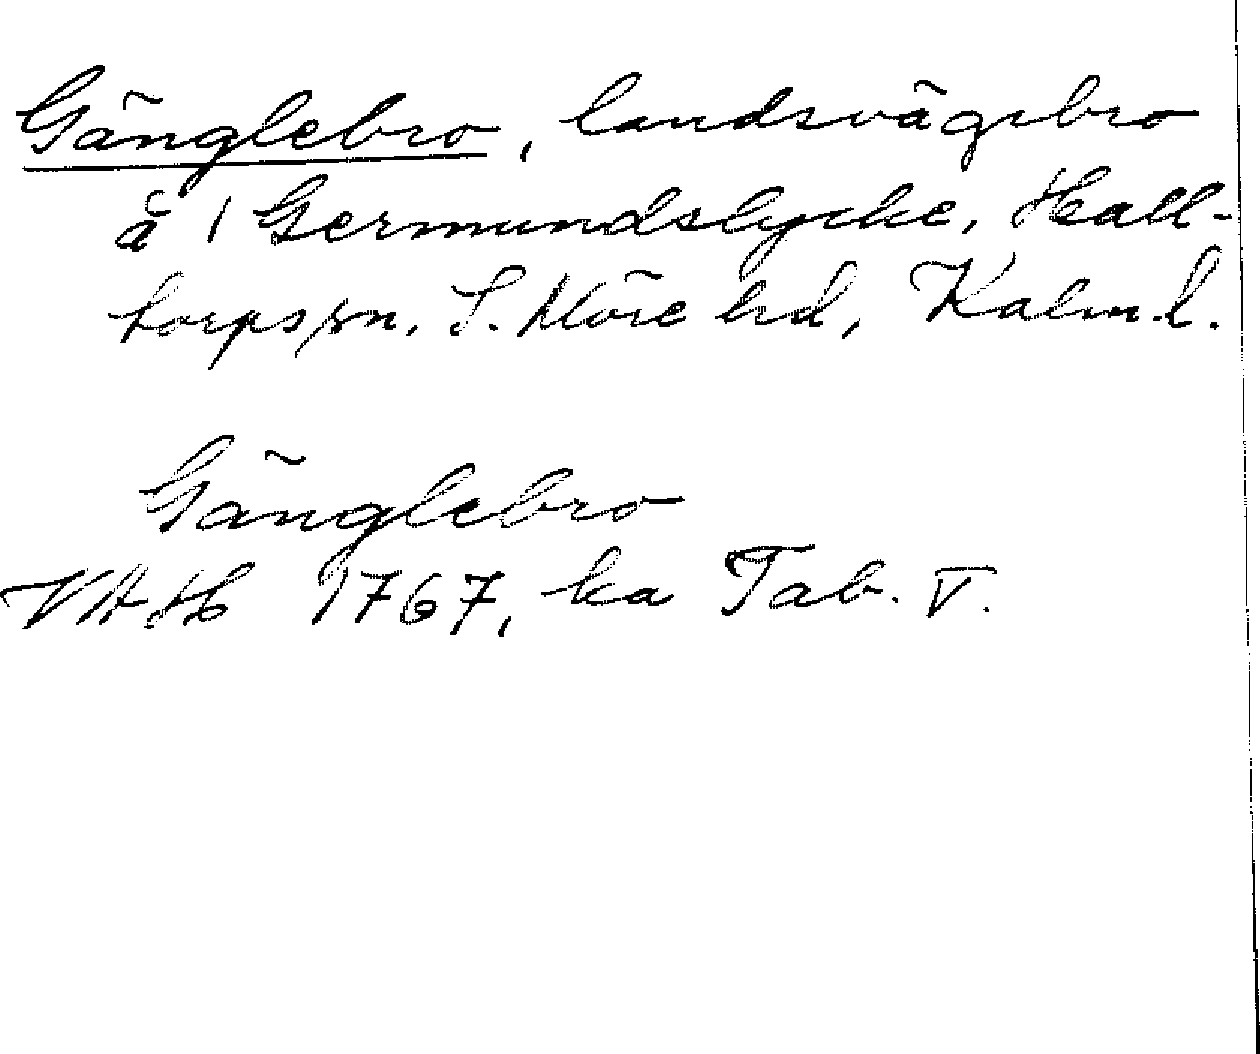 Gänglebro, landsvägsbro
å / Germundslycke, Hall-
torps sn. S. Möre hd, Kalm. l.
Gänglebro
VAH 1767, ka Tab. V.